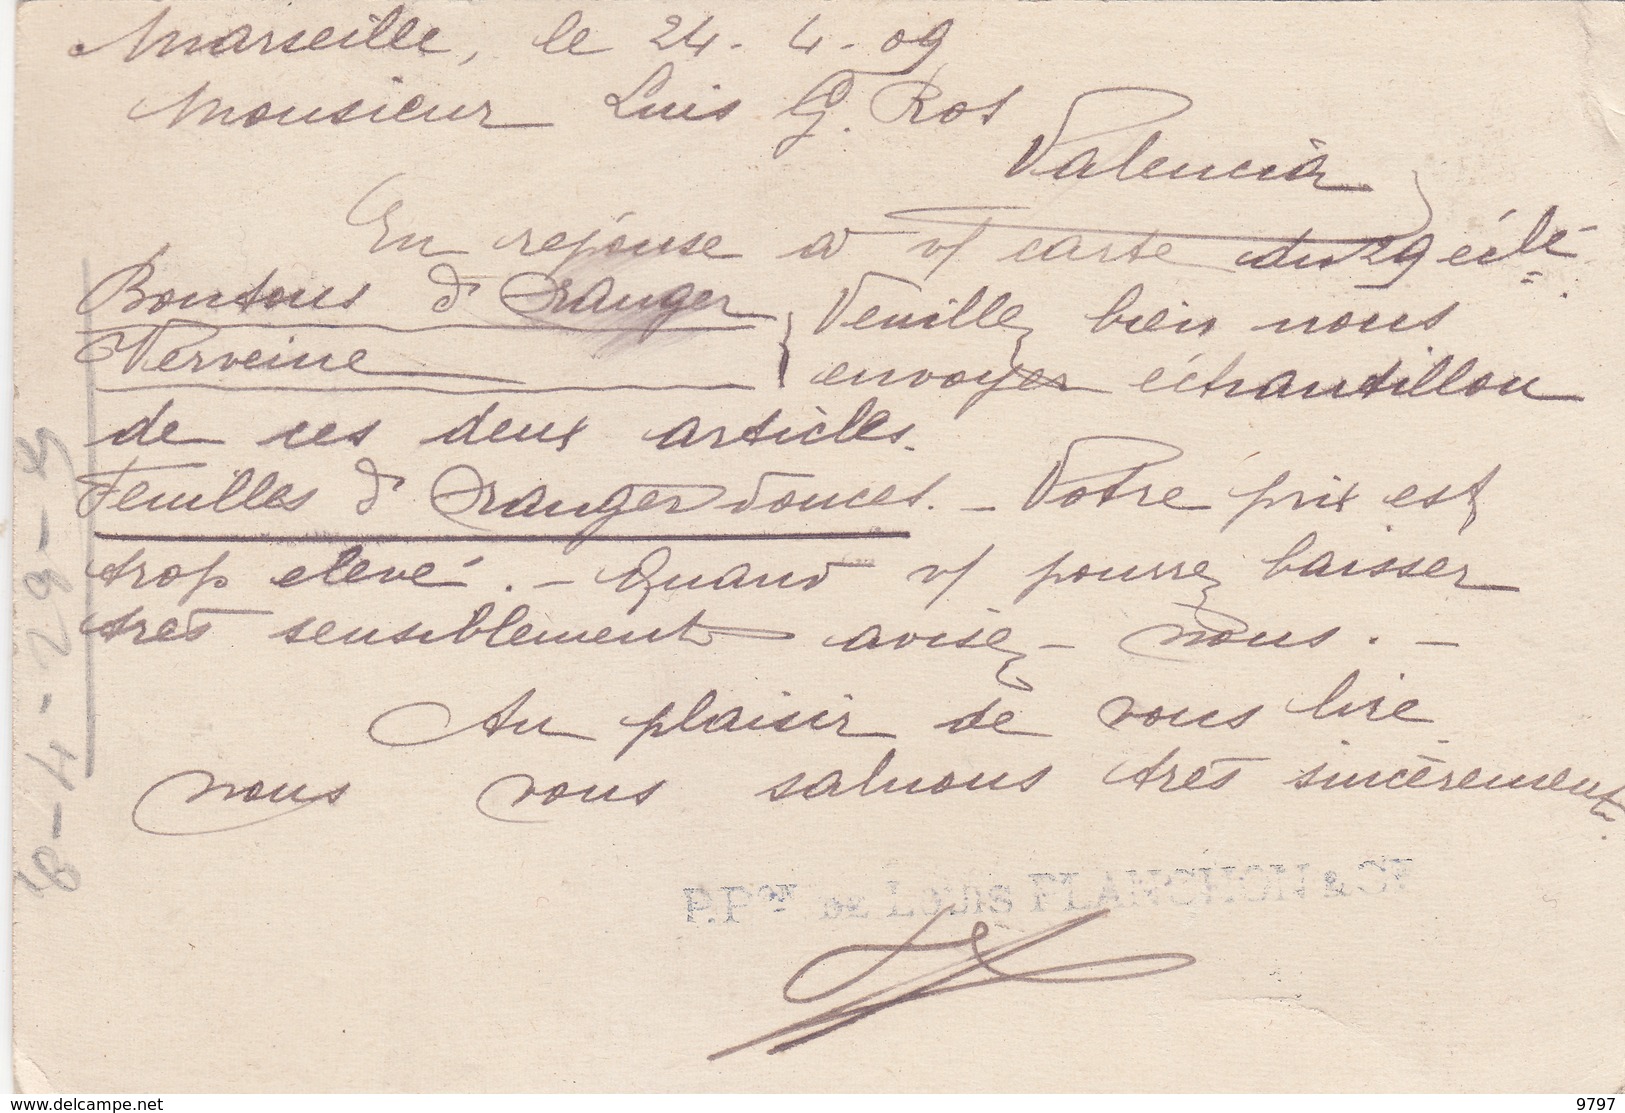 Marseille, le 24-4-09
Monsieur Luis G. Ros
Valencia
En réponse a v/ carte du 29 éclé
Boutons d'Oranger
Verveine
Veuillez bien nous
envoyer échantillon
de ces deux articles.
Feuilles d'Oranger douces. - Votre prix est
trop elevé. - Quand v/ pourrez baisser
très sensiblement avisez-nous. -
Au plaisir de vous lire
nous vous saluons très sincèrement.
P.Pon DE LOUIS PLANCHON & CIE
www.delcampe.net
9797